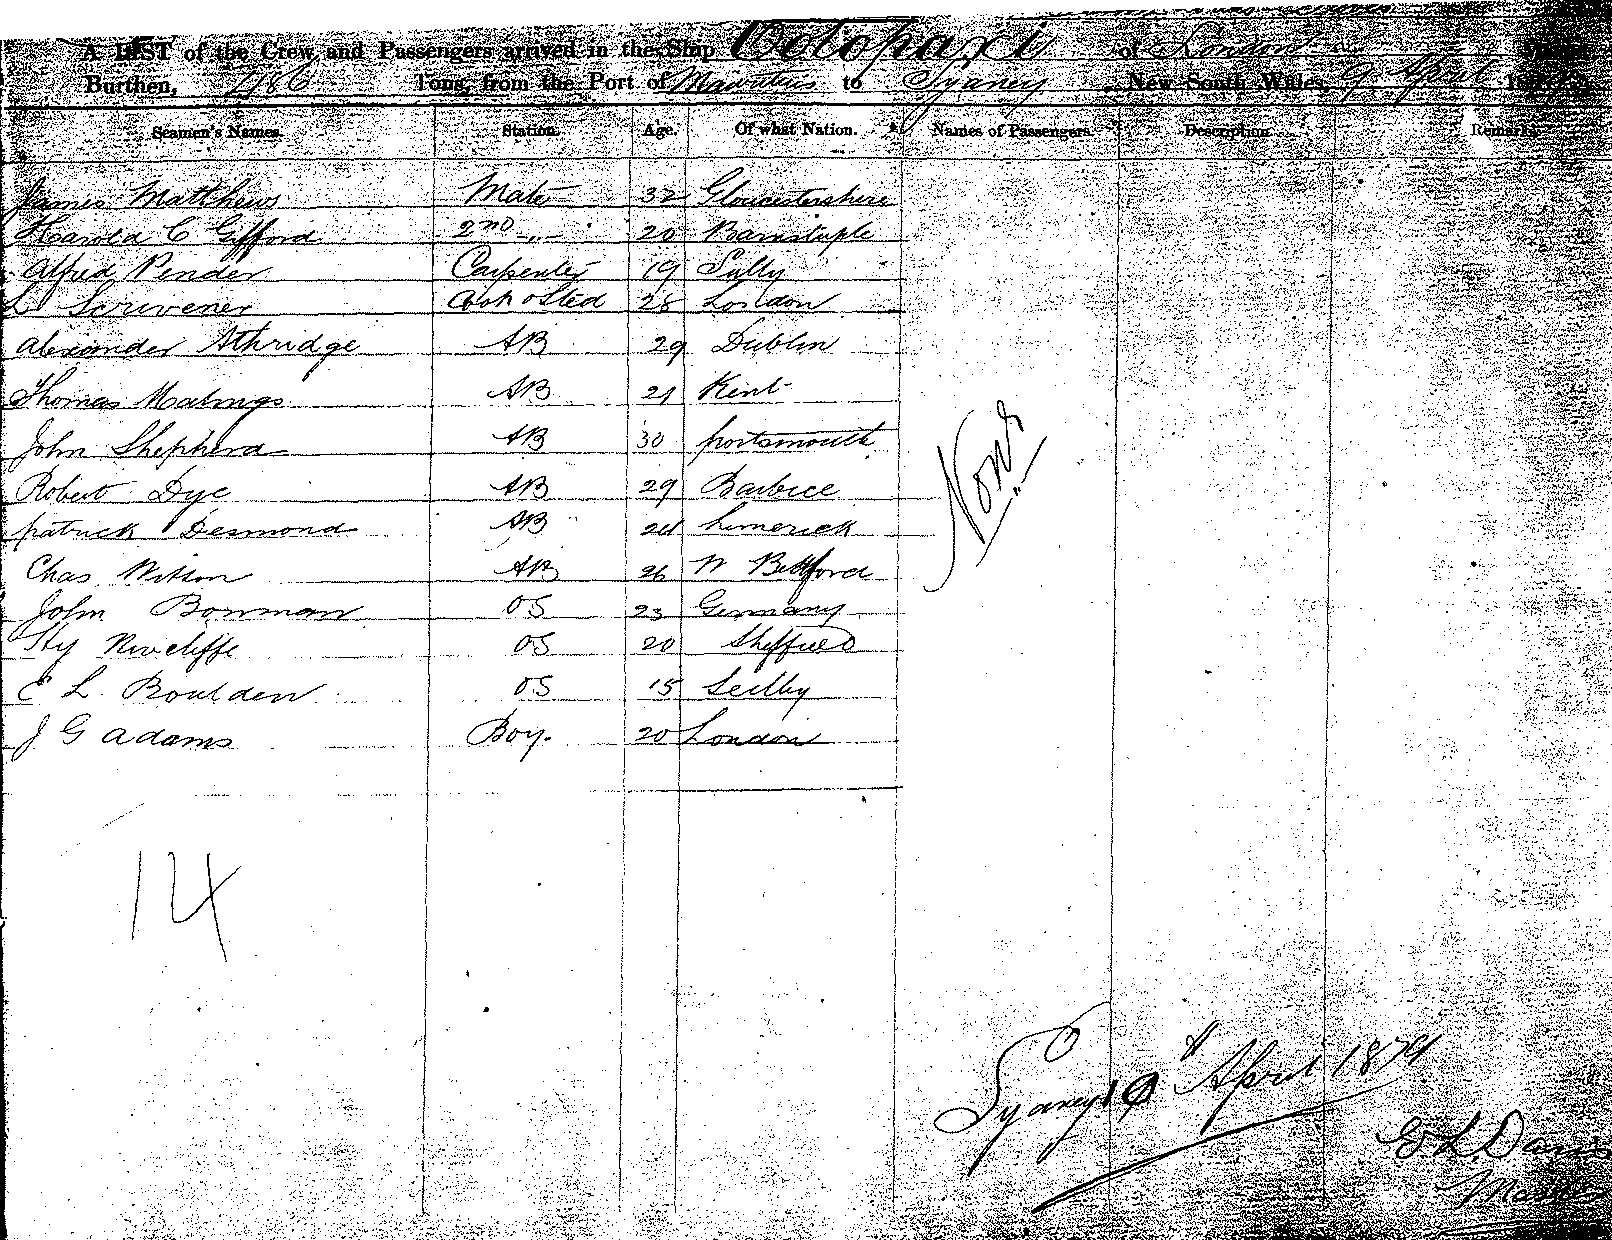 A LIST of the Crew and Passengers arrived in the Ship Cotopaxi of London
Burthen, 986 Tons, from the Port of Mauritius to Sydney New South Wales, 9 April 187
Seamen's Names. Station. Age. Of what Nation. Names of Passengers. Description. Remarks.
James Matthews Mate 32 Gloucestershire
Harold C Gifford 2nd -„- 20 Barnstaple
Alfred Pender Carpenter 19 Scilly
L. Scrivener Cook & Sted 28 London
Alexander Athridge AB 29 Dublin
Thomas Malings AB 21 Kent
John Shepherd AB 30 portsmouth
Robert Dye AB 29 Barbice
patrick Desmond AB 24 Limerick
Chas Wilson AB 26 N Bedford
John Bowman OS 23 Germany
Hy Rivcliffe OS 20 Sheffield
C L. Boulden OS 15
J G Adams Boy. 20 London
None
14
Sydney April 1874
Davis
Master